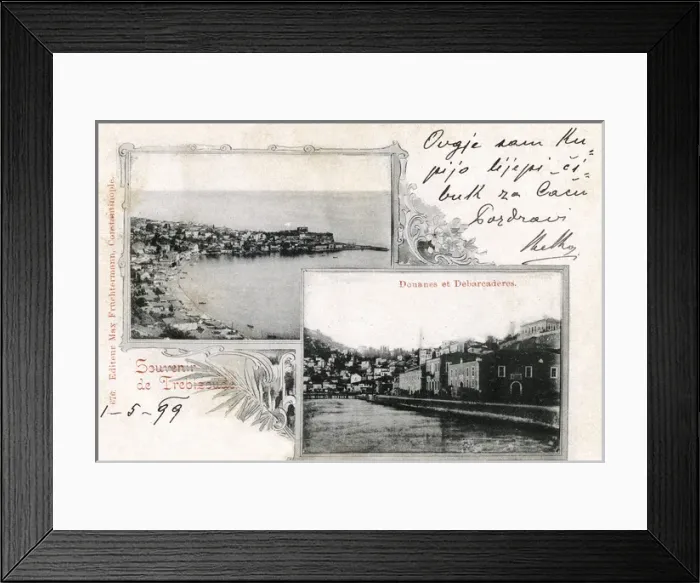 Ovgje sam Ku-
pijo lijepi či-
buk za Caću
Pozdravi
Douanes et Debarcadères.
676 Editeur Max Fruchtermann, Constantinople.
Souvenir
de Trébizonde
1-5-99